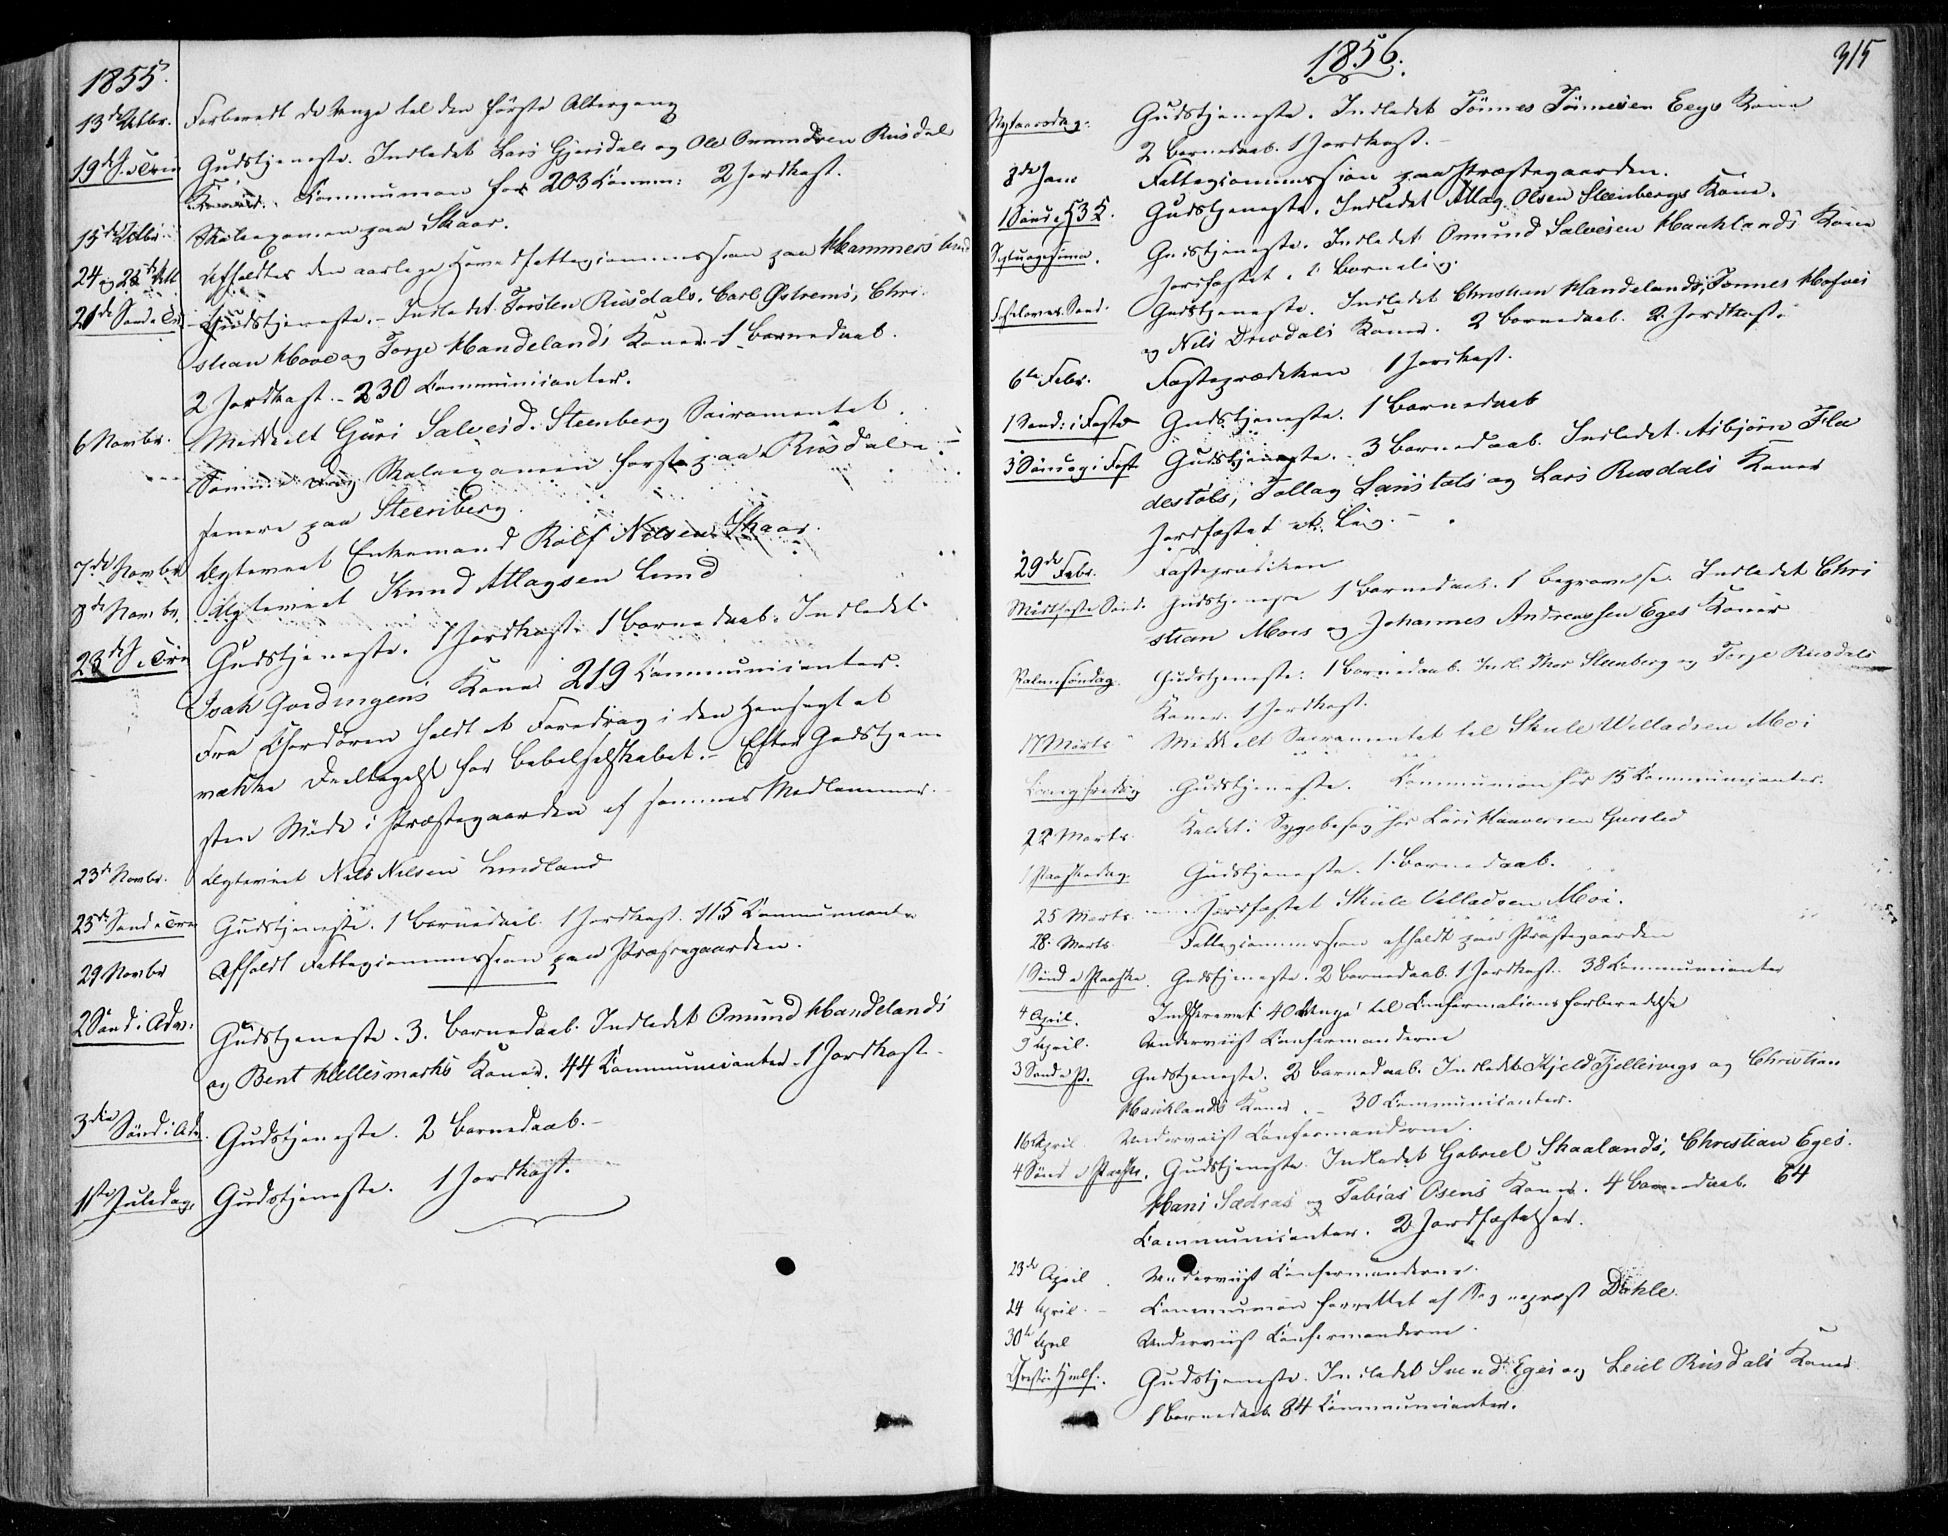 1855.
13de Octbr. Forberedt de Unge til den første Altergang
19de S. e Trin Gudstjeneste. Indledet Lars Gjersdals og Ole Omundsen Rusdal
Koner. Communion for 203 Comm: 2 Jordkast.
15de Octbr Skoleexamen paa Skaar.
24 og 25de Oct Afholdtes den aarlige Hovedfattigcommission paa Hammers
21de Sønd e Tri Gudstjeneste. Indledet Torsten Rusdals, Carl Østrems, Chri
stian Hove og Torje Handelands Koner. 1 Barnedaab.
2 Jordkast. 230 Communicanter.
6 Novbr. Meddelt Guri Salvesd. Steenberg Sacramentet.
Samme Dag Skoleexamen først paa Rusdal
senere paa Steenberg.
7de Novbr Ægteviet Enkemand Rolf Nilsen Skaar.
8de Novbr. Ægteviet Knud Atlagsen Lund
23de S. e Tri Gudstjeneste. 1 Jordkast. 1 Barnedaab. Indledet
Isak Gordingens Kone 219 Communicanter.
Fra Chordøren holdt et Foredrag i den Hensigt at
vække Deeltagelse for Bibelselskabet. Efter Gudstjene
sten Møde i Præstegaarden af sammes Medlemmer.
23de Novbr. Ægteviet Nils Nilsen Lundland
25de Sønd e Trin Gudstjeneste. 1 Barnedaab. 1 Jordkast. 115 Communicant
29 Novbr Afholdt Fattigcommission paa Præstegaarden.
2 Sønd i Adv: Gudstjeneste. 3. Barnedaab. Indledet Omund Handelands
og Bent Hellesmarks Koner. 44 Communicanter. 1 Jordkast.
3die Sønd i Adv. Gudstjeneste. 2 Barnedaab.
1ste Juledag. Gudstjeneste. 1 Jordkast.
1856.
315
Nytaarsdag: Gudstjeneste. Indledet Tønnes Tønnesen Eegs Kone
2 Barnedaab. 1 Jordkast.
8de Jan: Fattigcommission paa Præstegaarden.
1 Sønd e H 3 K. Gudstjeneste. Indledet Atlag Olsen Steenbergs Kone.
Septuagesima. Gudstjeneste. Indledet Omund Salvesen Hauklands Kone
Jordfæstet 1 Barnelig.
Fastelavns Sønd. Gudstjeneste. Indledet Christian Handelands, Tønnes
og Nils Drivdals Koner. 2 Barnedaab. 2 Jordkast.
6te Febr. Fasteprædiken 1 Jordkast.
1 Sønd: i Faste Gudstjeneste. 1 Barnedaab
3 Søndag i Fast Gudstjeneste. 3 Barnedaab. Indledet Asbjørn Fla
destøls, Tallag og Lars Rusdals Koner
Jordfæstet et Lig.
29de Febr. Fasteprædiken
Midfaste Sønd. Gudstjeneste 1 Barnedaab. 1 Begravelse. Indledet Chri
stian Mois og Johannes Andreassen Eges Koner
Palmesøndag. Gudstjeneste: 1 Barnedaab. Indl. Thor Steenberg og Torje Rusdals
Koner. 1 Jordkast.
17 Marts Meddelt Sacramentet til Skule Willadsen Moi
Langfredag Gudstjeneste. Communion for 15 Communicanter.
22 Marts Kaldet i Sygebesøg hos Lars Haaversen Gursled
1 Paaskedag. Gudstjeneste. 1 Barnedaab.
25 Marts. Jordfæstet Skule Villadsen Moi.
28. Marts. Fattigcommission afholdt paa Præstegaarden
1 Sønd e Paaske. Gudstjeneste. 2 Barnedaab. 1 Jordkast. 38 Communicanter
4 April. Indskrevet 40 Unge til Confirmationsforberedelse
9 April. Underviist Confirmanderne
3 Sønd e P. Gudstjeneste. 2 Barnedaab. Indledet Kjeld Tjellesvigs og Christian
Hauklands Koner. 30 Communicanter.
16 April Underviist Confirmanderne.
4 Sønd e Paaske. Gudstjeneste. Indledet Gabriel Skaalands, Christian Eges.
Hans Sædras og Tobias Osens Koner. 4 Barnedaab. 64
Communicanter. 2 Jordfæstelser.
23de April Underviist Confirmanderne.
24 April. Communion forrettet af Sognepræst Dahle.
30te April Underviist Confirmanderne.
Christi Hmlf. Gudstjeneste. Indledet Svend Eges og Leul Rusdals Koner
1 Barnedaab 84 Communicanter.